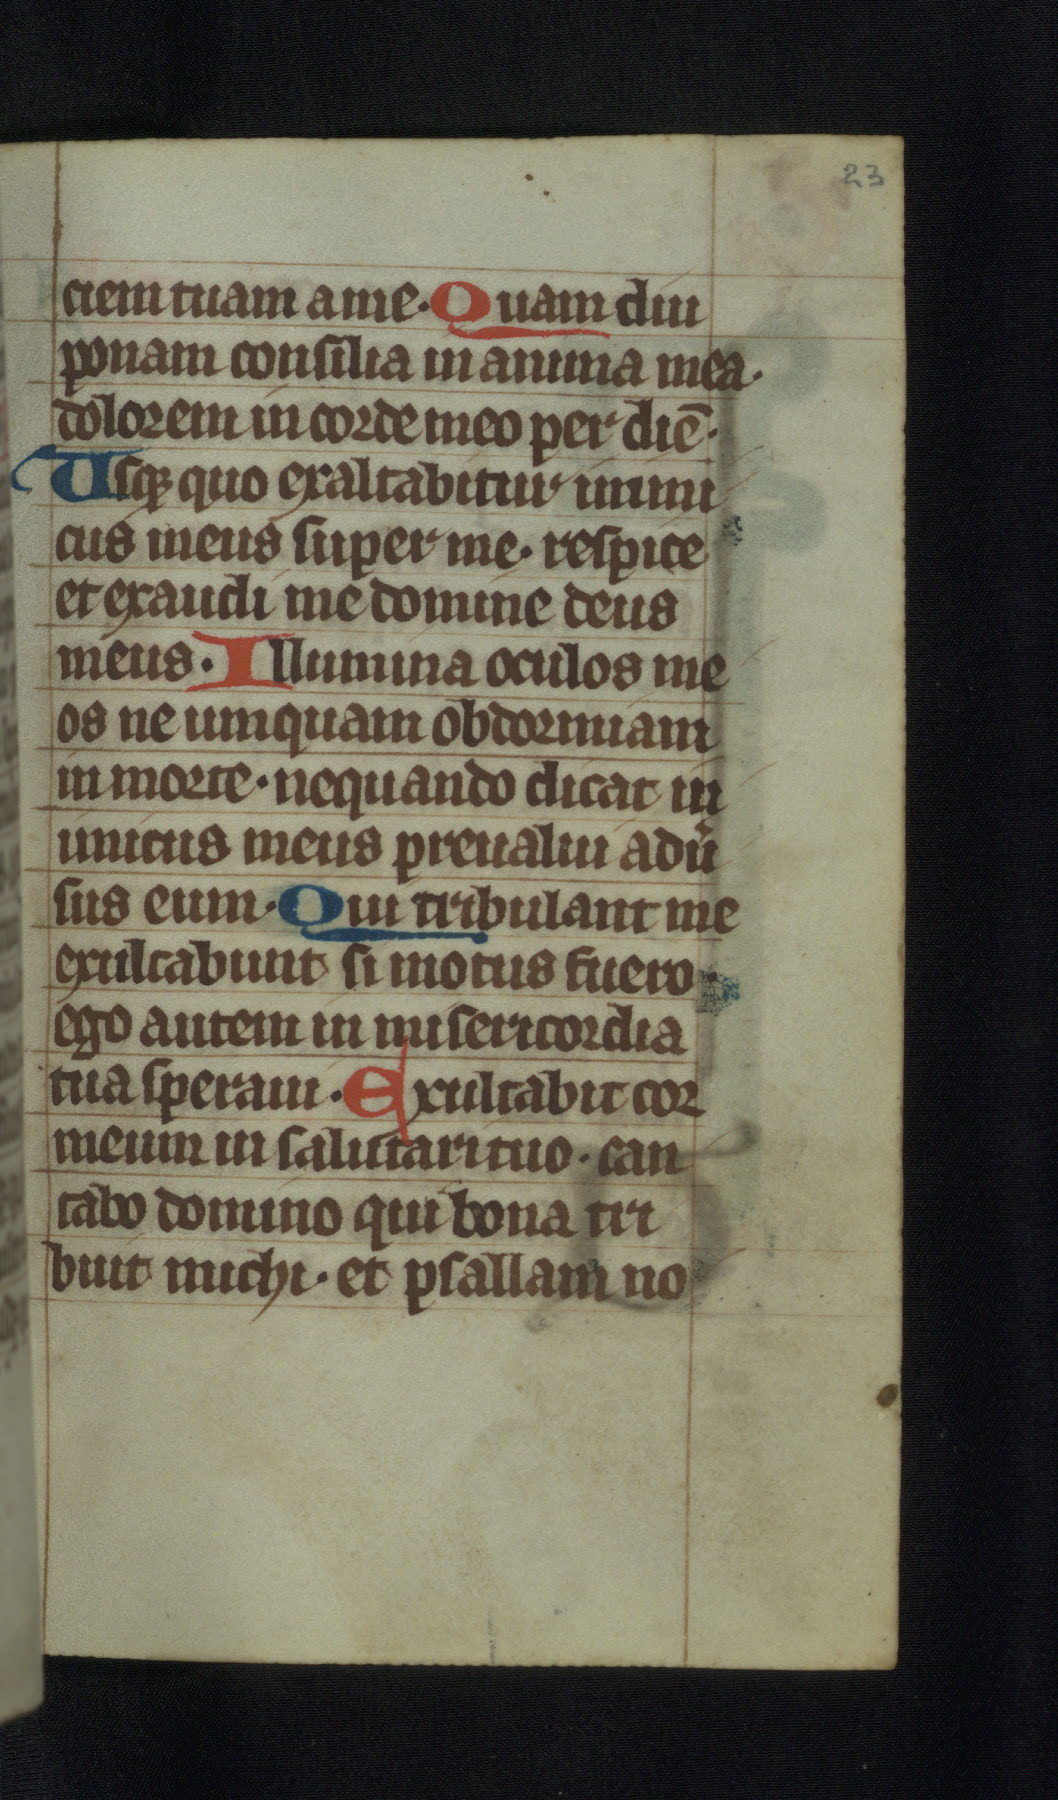 23
ciem tuam a me. Quam diu
ponam consilia in anima mea.
dolorem in corde meo per diē.
Usqꝫ quo exaltabitur inimi
cus meus super me. respice
et exaudi me domine deus
meus. Illumina oculos me
os ne umquam obdormiam
in morte. nequando dicat in
imicus meus preualui adū
sus eum. Qui tribulant me
exultabunt si motus fuero.
ego autem in misericordia
tua speraui. Exultabit cor
meum in salutari tuo. can
tabo domino qui bona tri
buit michi. et psallam no